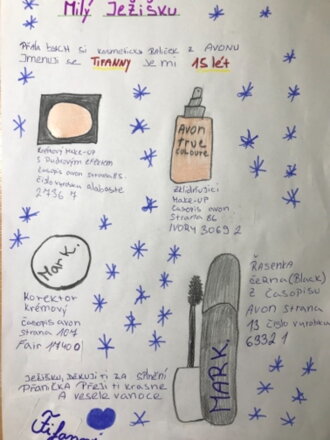 Milý Ježíšku
Přála bych si kosmetický balíček z AVONU
Jmenuji se TIFANNY Je mi 15 lét
AVON
true
colour
krémový Make-up
s Pudrovým efektem
časopis avon strana 85.
číslo výrobku alabaste
2736 7
zklidňující
Make-up
časopis avon
strana 86
IVORY 3069 2
Mark.
Korektor
krémový
časopis avon
strana 101
Fair 1740 0
MARK.
Řasenka
černá (Black)
z časopisu
Avon strana
13 číslo výrobku
6332 1
Ježíšku, děkuji ti za splnění
Přaníčka Přeji ti krásné
A veselé vánoce